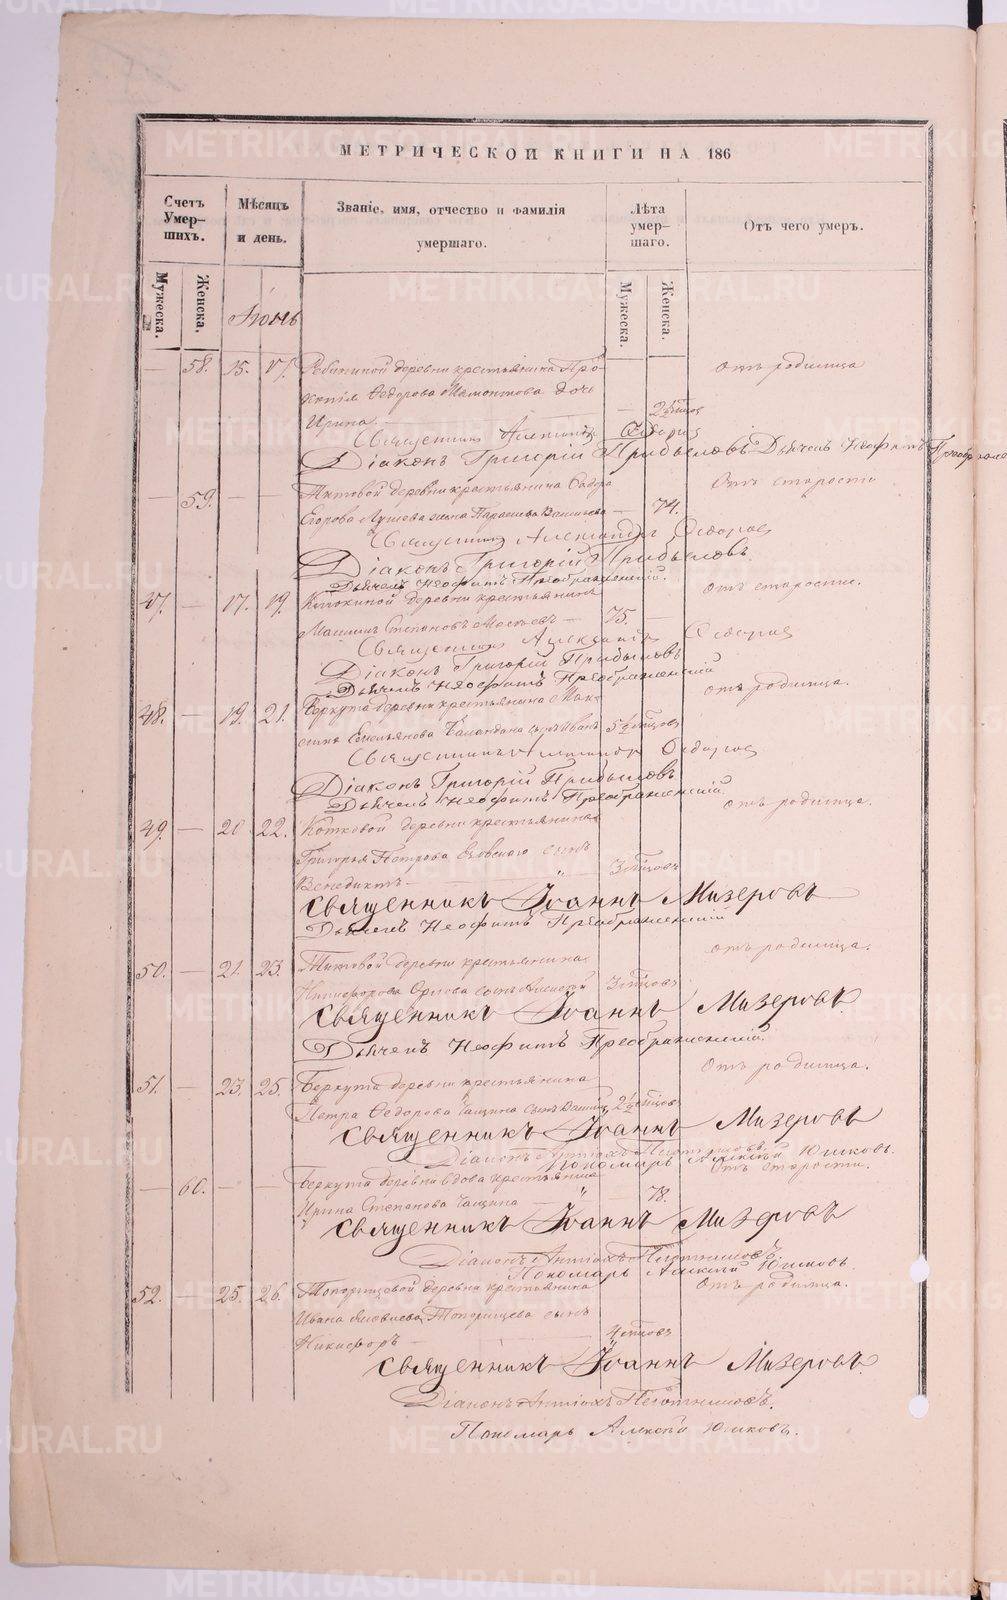 МЕТРИЧЕСКОЙ КНИГИ НА 186
Счетъ Умер-шихъ.
Мѣсяцъ и день.
Званіе, имя, отчество и фамилія умершаго.
Лѣта умер-шаго.
Отъ чего умеръ.
Мужеска.
Женска.
Мужеска.
Женска.
Іюнь
— 58. 15. 17. деревни крестьянина Про- отъ родимца
копія Ѳедорова Мамонтова дочь
Ирина —
Священникъ Александръ Сѣдоровъ
Діаконъ Григорій Прибыловъ Дьячекъ Неофитъ
— 59. — — Титовой деревни крестьянина Отъ старости
Егорова жена Параскева Васильева — 74.
Священникъ Александръ
Діаконъ Григорій Прибыловъ.
Дьячекъ Неофитъ Преображенскій.
47. — 17. 19. деревни крестьянинъ отъ старости.
Степановъ — 75. —
Священникъ Александръ
Діаконъ Григорій Прибыловъ
Дьячекъ Неофитъ Преображенскій
48. — 19. 21. Беркута деревни крестьянина Мак- отъ родимца.
сима Емельянова сынъ Иванъ 5½ мѣсцовъ
Священникъ Александръ
Діаконъ Григорій Прибыловъ
Дьячекъ Неофитъ Преображенскій.
49. — 20 22. деревни крестьянина отъ родимца.
Григорья Петрова сынъ
Венедиктъ — 3 мѣсцовъ
Священникъ Іоаннъ Мизеровъ
Дьячекъ Неофитъ Преображенскій
50. — 21. 23. Титовой деревни крестьянина отъ родимца.
Никифорова Орлова сынъ Алексѣй 3 мѣсцовъ
Священникъ Іоаннъ Мизеровъ.
Дьячекъ Неофитъ Преображенскій.
51. — 23. 25. Беркута деревни крестьянина Отъ родимца.
Петра Ѳедорова Чащина сынъ 2½ мѣсцовъ
Священникъ Іоаннъ Мизеровъ
Діаконъ Антіохъ
Пономарь Алексѣй Юшковъ.
— 60. — — Беркута деревни вдова крестьянка Отъ старости.
Ирина Степанова Чащина — 78.
Священникъ Іоаннъ Мизеровъ
Діаконъ Антіохъ
Пономарь Алексѣй Юшковъ
52. — 25. 26. Топорищевой деревни крестьянина отъ родимца.
Ивана Яковлева Топорищева сынъ
Никифоръ — 4 мѣсцовъ
Священникъ Іоаннъ Мизеровъ.
Діаконъ Антіохъ
Пономарь Алексѣй Юшковъ.
METRIKI.GASO-URAL.RU